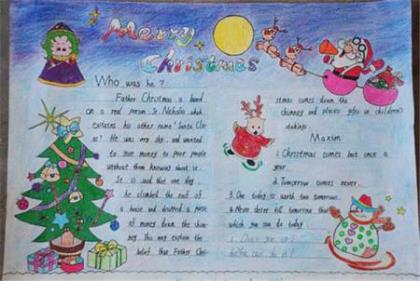 Merry
Christmas
Who was he?
Father Christmas is based
on a real person St. Nicholas which
explains his other name "Santa Cla-
us". He was very shy and wanted
to give money to poor people
without them knowing about it.
It is said that one day,
he climbed the roof of
a house and dropped a purse
of money down the chim-
ney. This may explain the
belief that Father Chri-
stmas comes down the
chimney and places gifts in children's
stockings
Maxim
1. Christmas comes but once a
year.
2. Tomorrow comes never.
3. One today is worth two tomorrows.
4. Never defer till tomorrow that
which you can do today.